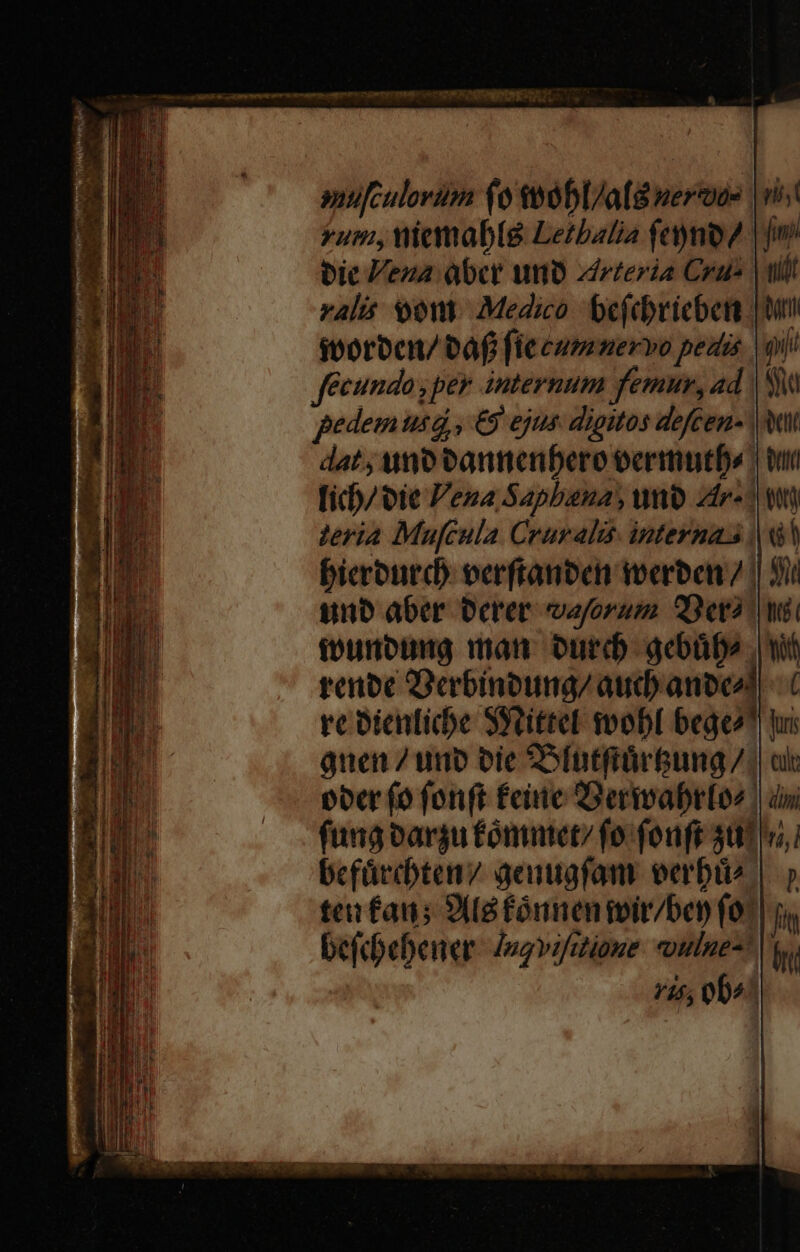 muſculorum ſo wohl/als nervo⸗
rum, niemahls Lethalia ſeynd/
die Vena aber und Arteria Cru⸗
ralis vom Medico beſchrieben
worden/ daß ſie cum nervo pedis
ſecundo, per internum femur, ad
pedem usq́;, & ejus digitos deſcen⸗
dat, und dannenhero vermuth⸗
lich/ die Vena Saphæna, und Ar⸗
teria Muſcula Cruralis interna⸗
hierdurch verſtanden werden/
und aber derer vaſorum Ver⸗
wundung man durch gebuͤh⸗
rende Verbindung/ auch ande⸗
re dienliche Mittel wohl bege⸗
gnen / und die Blutſtuͤrtzung /
oder ſo ſonſt keine Verwahrlo⸗
ſung darzu koͤmmet/ ſo ſonſt zu
befuͤrchten/ genugſam verhuͤ⸗
ten kan; Als koͤnnen wir/bey ſo
beſchehener Inqviſitione vulne⸗
ris, ob⸗